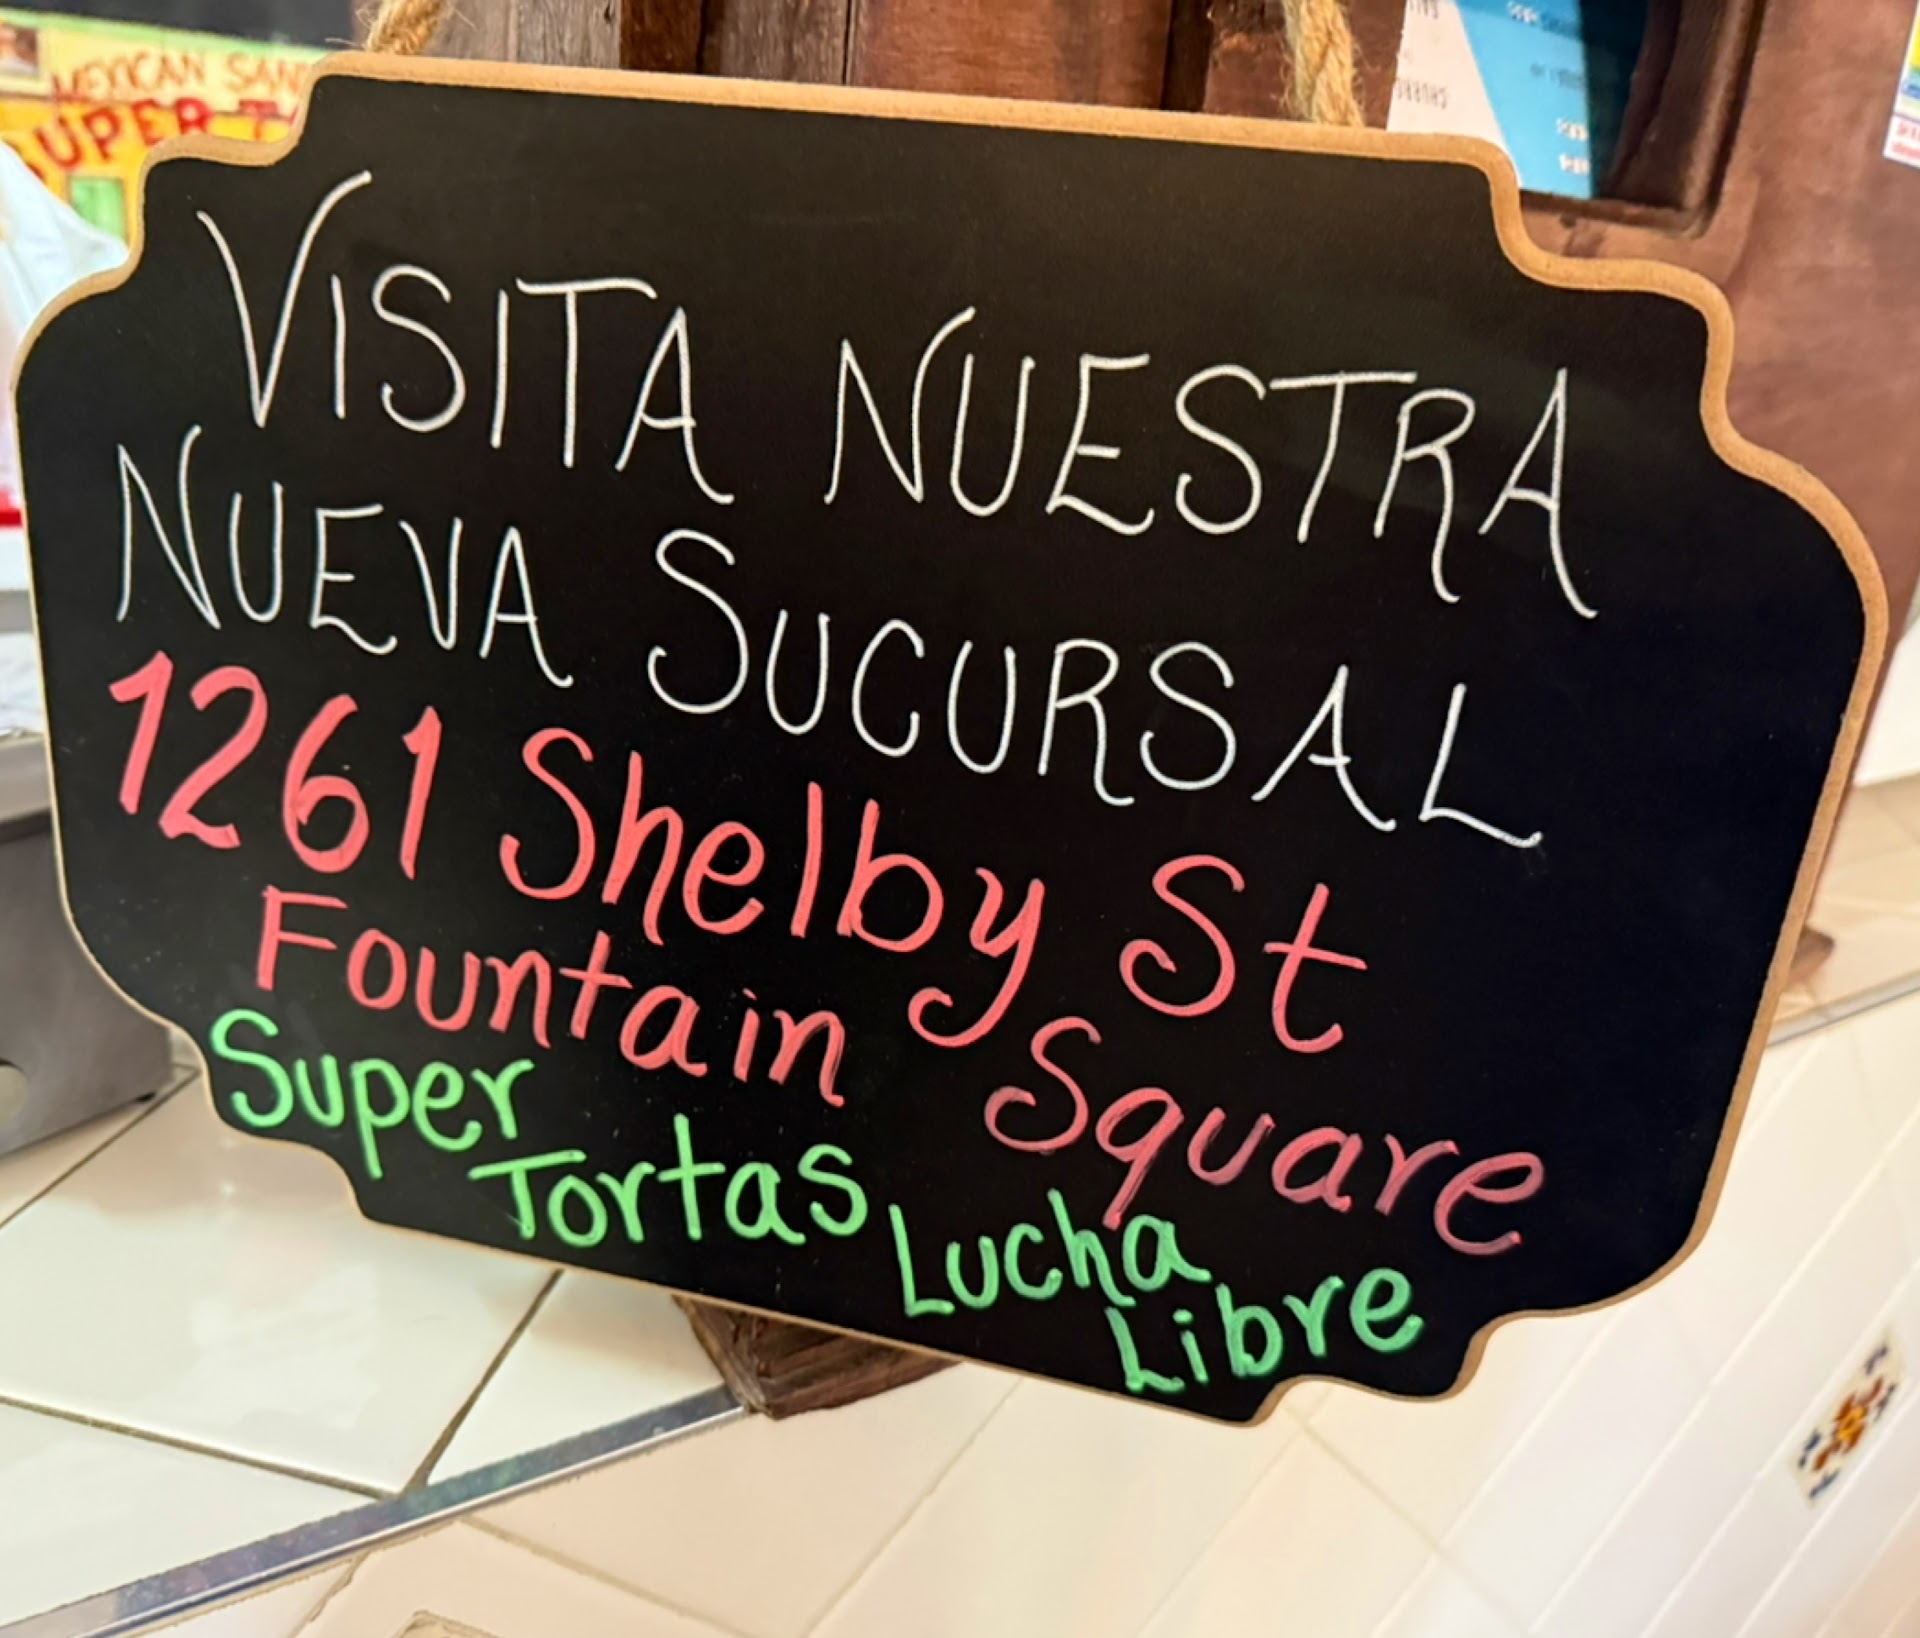 MEXICAN
SUPER
VISITA NUESTRA
NUEVA SUCURSAL
1261 Shelby St
Fountain Square
Super
Tortas
Lucha
Libre